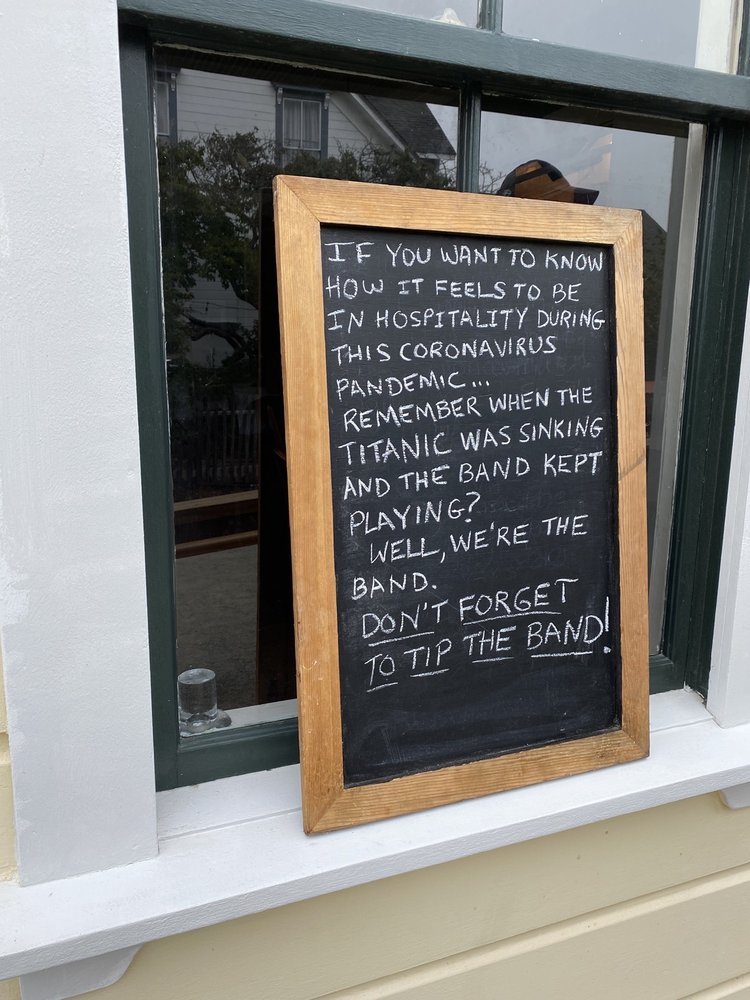 IF YOU WANT TO KNOW
HOW IT FEELS TO BE
IN HOSPITALITY DURING
THIS CORONAVIRUS
PANDEMIC...
REMEMBER WHEN THE
TITANIC WAS SINKING
AND THE BAND KEPT
PLAYING?
WELL, WE'RE THE
BAND.
DON'T FORGET
TO TIP THE BAND!